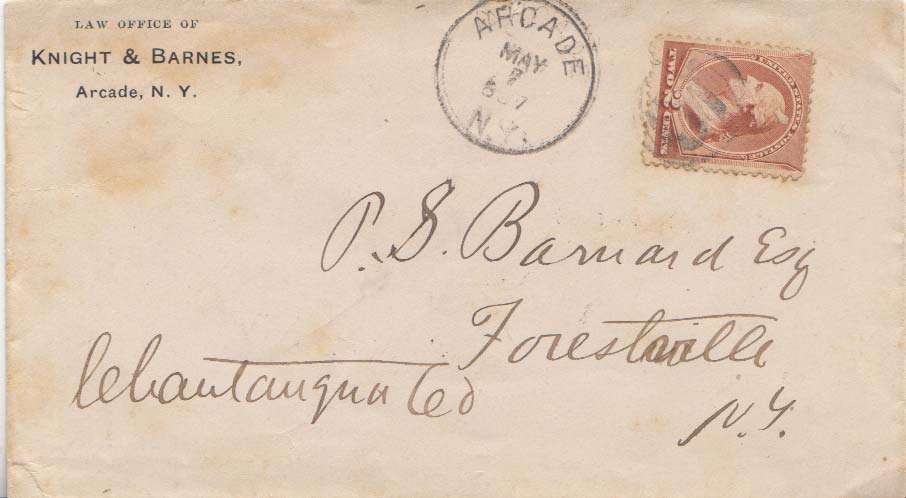 LAW OFFICE OF
KNIGHT & BARNES,
Arcade, N. Y.
ARCADE
MAY
7
N.Y.
UNITED STATES POSTAGE
TWO CENTS
P. S. Barnard Esq
Forestville
Chautauqua Co
N.Y.